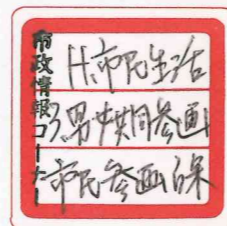 市政情報コーナー
H.市民生活
3.男女共同参画
市民参画課